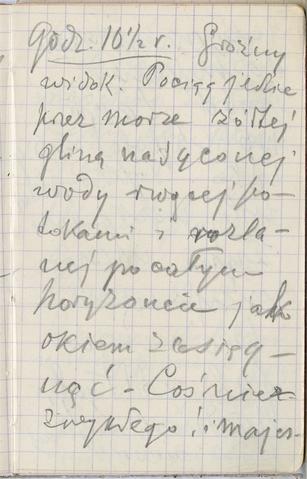 Godz. 10½ r. Groźny
widok. Pociąg jedzie
przez morze żółtej
gliną nasyconej
wody rwącej po-
tokami i rozla-
nej po całym
horyzoncie jak
okiem zasięg-
nąć – Coś nie-
zwykłego! i majes-